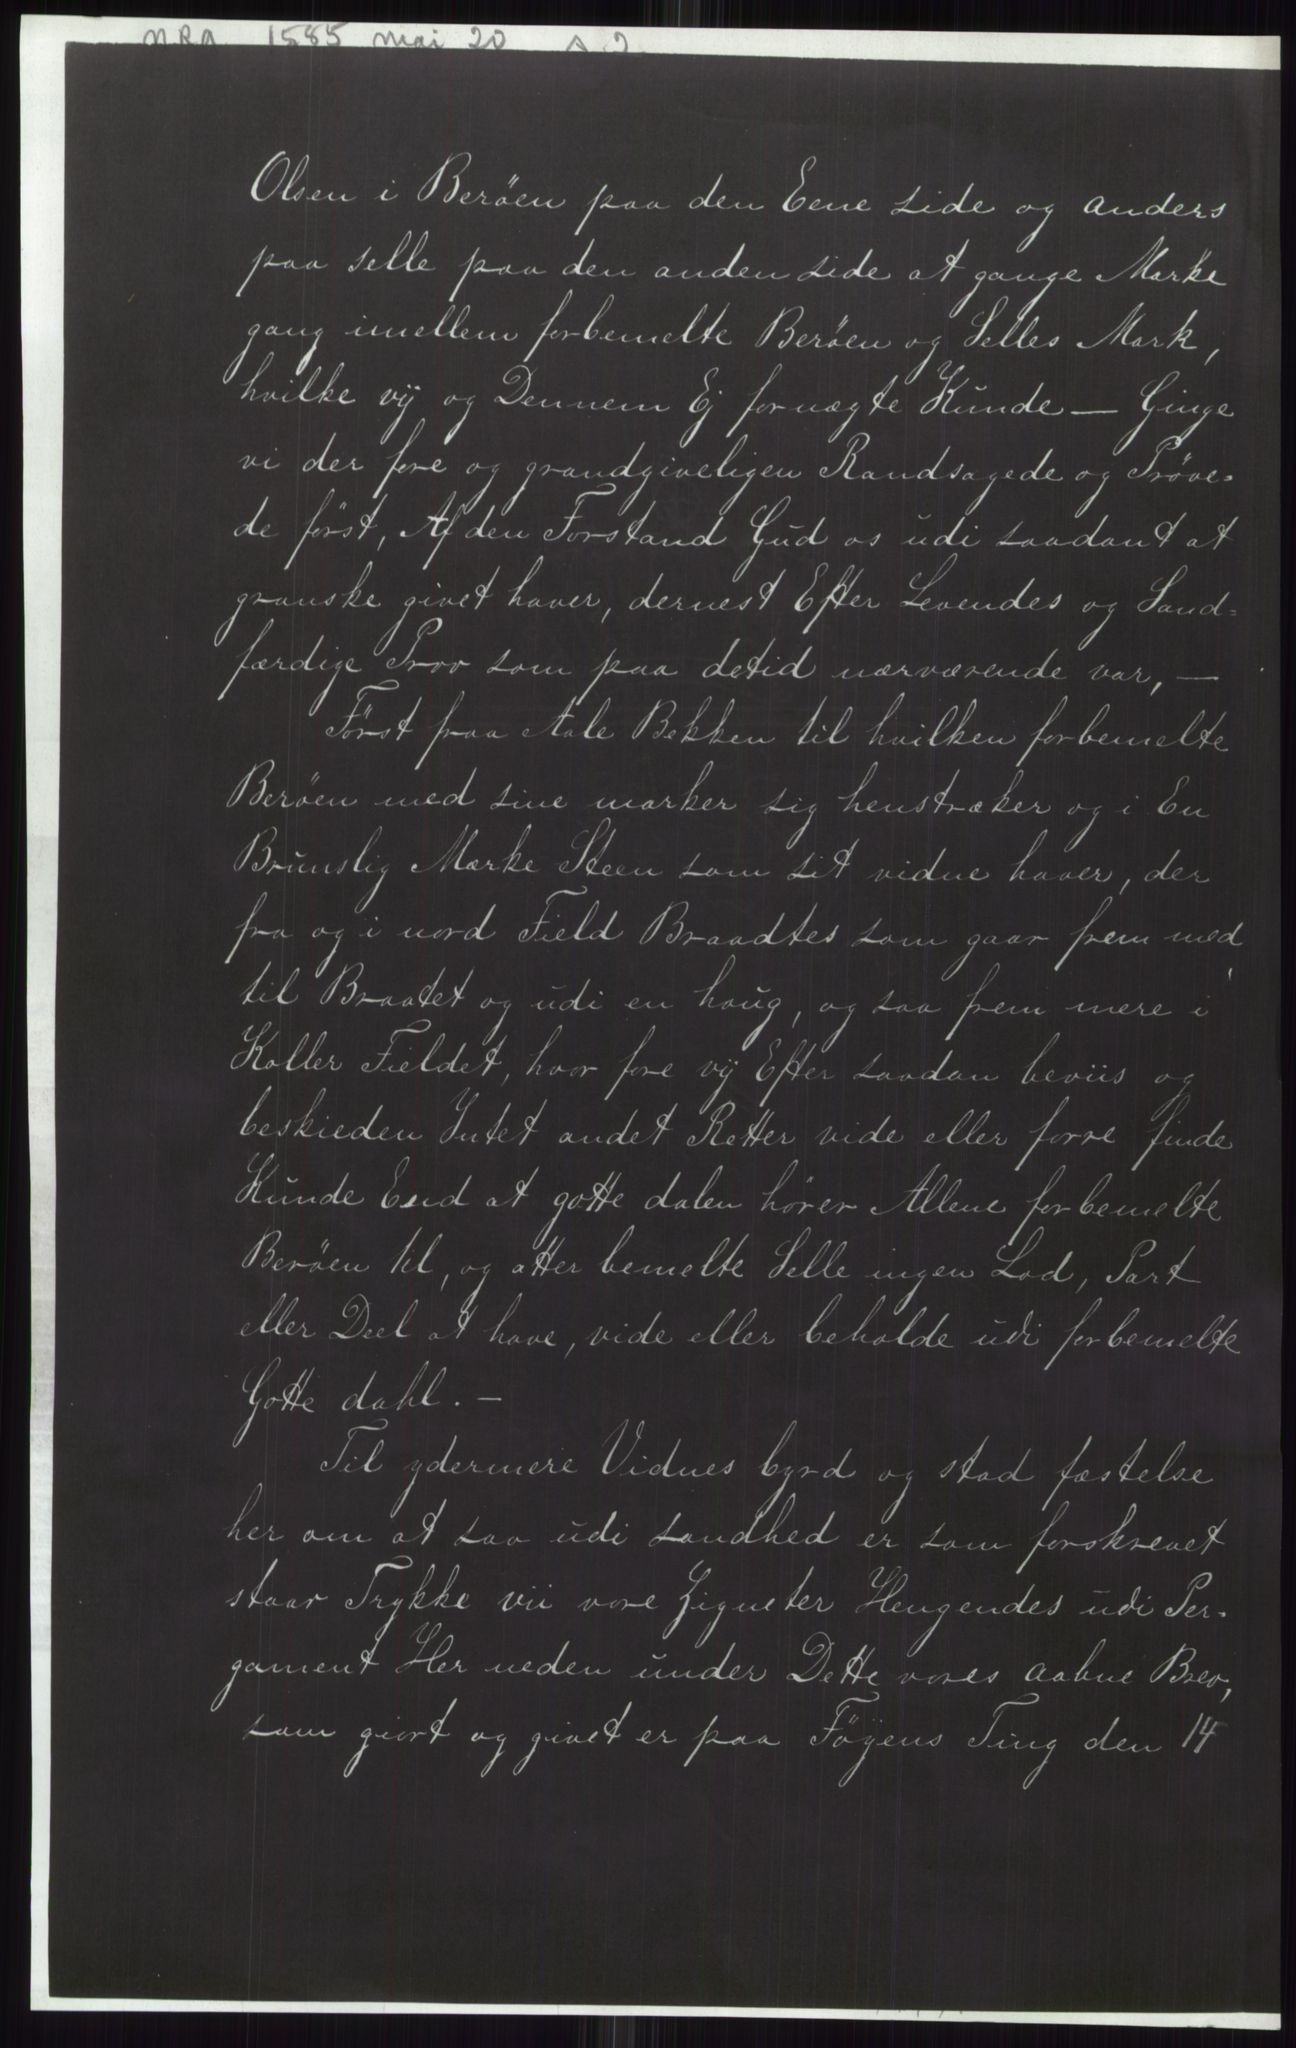 NRA 1585 mai 20 A 2
Olsen i Beröen paa den Eene side og anders
paa selle paa den anden side at gange Marke
gang imellem forbemelte Beröen og Selles Mark,
hvilke vÿ og Dennem Ej fornægte Kunde — Ginge
vi der fore og grandgiveligen Randsagede og Pröve-
de först, Af den Forstand Gud os udi saadant at
granske givet haver, dernest Efter Levendes og Sand-
færdige Prov som paa detid nærværende var, —
Först fraa Aale Bekken til hvilken forbemelte
Beröen med sine marker sig henstræker og i En
Brunslig Marke Steen som sit vidne haver, der
fra og i nord Field Braadtes som gaar frem med
til Braatet og udi en houg, og saa frem mere i
Koller Fieldet, hvor fore vÿ Efter saadan beviis og
beskieden Intet andet Retter vide eller forre finde
Kunde End at gotte dalen hörer Allene forbemelte
Beröen til, og atter bemelte Selle ingen Lod, Part
eller Deel at have, vide eller beholde udi forbemelte
Gotte dahl. —
Til ydermere Vidnes byrd og stad fæstelse
her om at saa udi sandhed er som forskrevet
staar Trykke vii vore Zigneter Hengendes udi Per-
gament Her neden under Dette vores aabne Brev,
som giort og givet er paa Föÿens Ting den 14